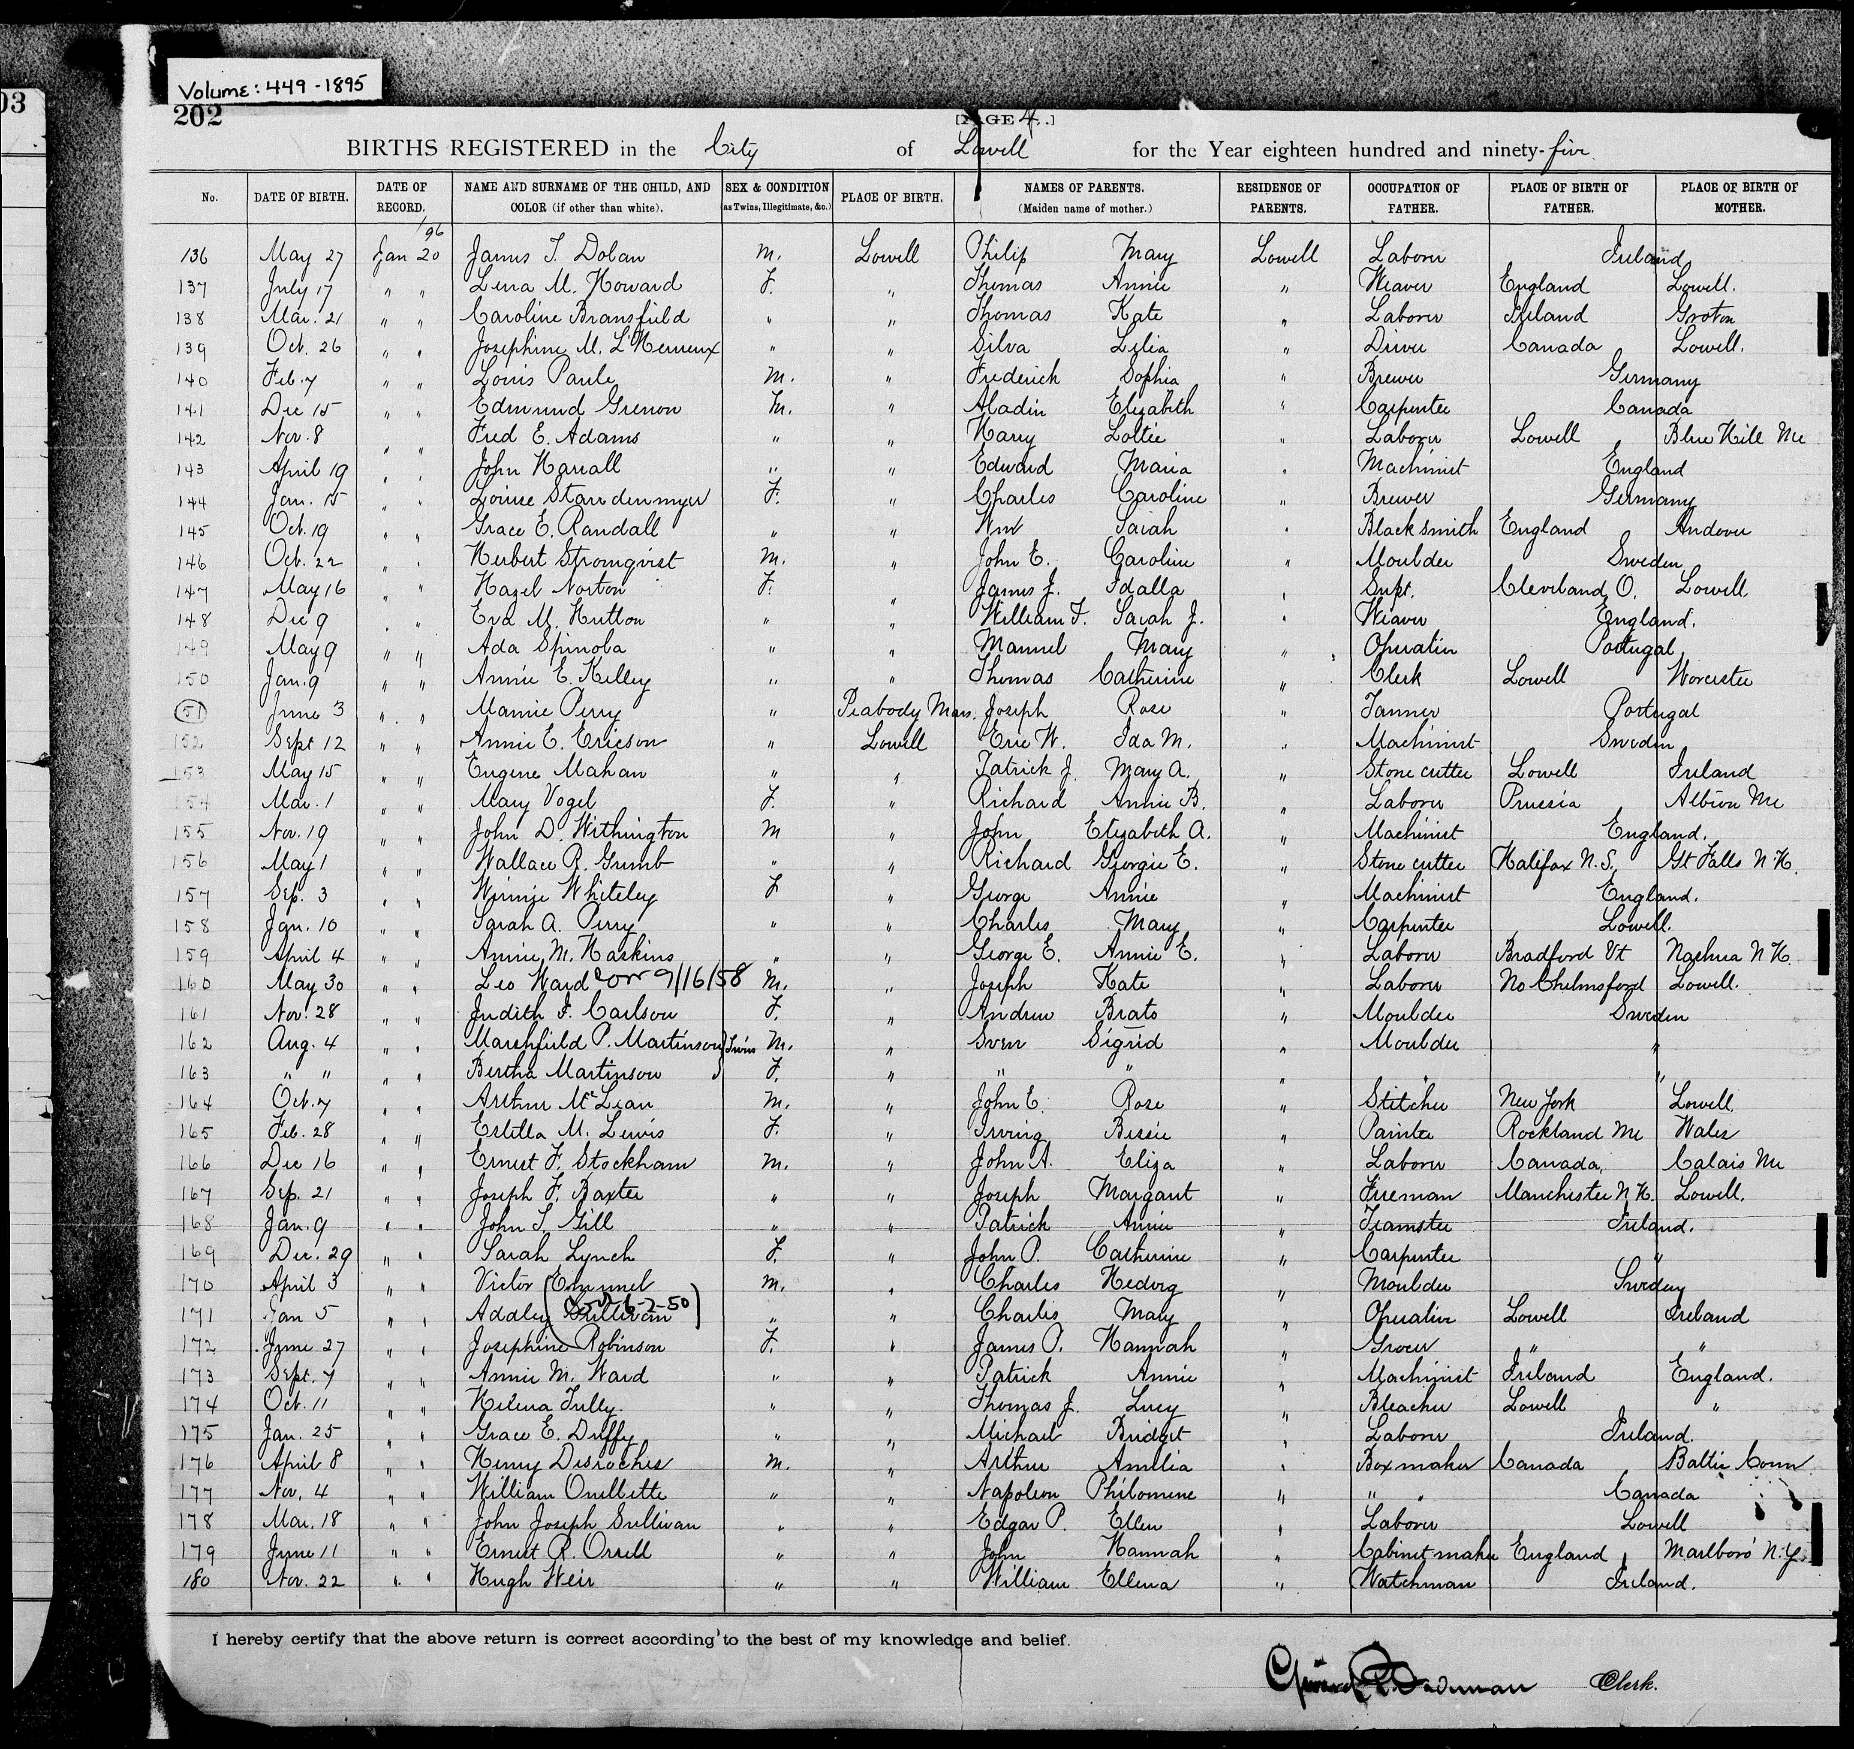 03
Volume: 449 - 1895
202
[PAGE 4.]
BIRTHS REGISTERED in the City of Lowell for the Year eighteen hundred and ninety-five
No. DATE OF BIRTH. DATE OF RECORD. NAME AND SURNAME OF THE CHILD, AND COLOR (if other than white). SEX & CONDITION (as Twins, Illegitimate, &c.) PLACE OF BIRTH. NAMES OF PARENTS. (Maiden name of mother.) RESIDENCE OF PARENTS. OCCUPATION OF FATHER. PLACE OF BIRTH OF FATHER. PLACE OF BIRTH OF MOTHER.
'96
136 May 27 Jan 20 James T. Dolan M. Lowell Philip Mary Lowell Laborer Ireland
137 July 17 " " Lena M. Howard F. " Thomas Annie " Weaver England Lowell.
138 Mar. 21 " " Caroline Bransfield " " Thomas Kate " Laborer Ireland Groton
139 Oct. 26 " " Josephine M. L'Herneux " " Silva Lelia " Driver Canada Lowell.
140 Feb. 7 " " Louis Paule M. " Frederick Sophia " Brewer Germany
141 Dec 15 " " Edmund Grenon M. " Aladin Elizabeth " Carpenter Canada
142 Nov. 8 " " Fred E. Adams " " Harry Lottie " Laborer Lowell Blue Hill Me
143 April 19 " " John Harrall " " Edward Maria " Machinist England
144 Jan. 15 " " Louise Starrdenmyer F. " Charles Caroline " Brewer Germany
145 Oct. 19 " " Grace E. Randall " " Wm Sarah " Blacksmith England Andover
146 Oct. 22 " " Herbert Stromqvist M. " John E. Caroline " Moulder Sweden
147 May 16 " " Hazel Norton F. " James J. Idalla " Supt. Cleveland, O. Lowell
148 Dec 9 " " Eva M. Hutton " " William F. Sarah J. " Weaver England.
149 May 9 " " Ada Spinola " " Manuel Mary " Operative Portugal
150 Jan. 9 " " Annie E. Kelley " " Thomas Catherine " Clerk Lowell Worcester
151 June 3 " " Mamie Perry " Peabody Mass. Joseph Rose " Tanner Portugal
152 Sept 12 " " Annie E. Ericson " Lowell Eric W. Ida M. " Machinist Sweden
153 May 15 " " Eugene Mahan " " Patrick J. Mary A. " Stone cutter Lowell Ireland
154 Mar. 1 " " Mary Vogel F. " Richard Annie B. " Laborer Prussia Albion Me
155 Nov. 19 " " John D. Withington M " John Elizabeth A. " Machinist England.
156 May 1 " " Wallace R. Grumb " " Richard Georgie E. " Stone cutter Halifax N.S. Gt Falls N.H.
157 Sep. 3 " " Winnie Whiteley F " George Annie " Machinist England.
158 Jan. 10 " " Sarah A. Perry " " Charles Mary " Carpenter Lowell.
159 April 4 " " Annie M. Haskins " " George E. Annie E. " Laborer Bradford Vt Nashua N.H.
160 May 30 " " Leo Ward corr 9/16/58 M. " Joseph Kate " Laborer No Chelmsford Lowell.
161 Nov. 28 " " Judith I. Carlson F. " Andrew Brato " Moulder Sweden
162 Aug. 4 " " Marshfield P. Martinson } Twins M. " Sven Sigrid " Moulder "
163 " " " " Bertha Martinson F. " " " " " "
164 Oct. 7 " " Arthur McLean M. " John E. Rose " Stitcher New York Lowell.
165 Feb. 28 " " Estella M. Lewis F. " Irving Bessie " Painter Rockland Me Wales
166 Dec 16 " " Ernest F. Stockham M. " John A. Eliza " Laborer Canada, Calais Me
167 Sep. 21 " " Joseph F. Baxter " " Joseph Margaret " Fireman Manchester N.H. Lowell.
168 Jan. 9 " " John T. Gill " " Patrick Annie " Teamster Ireland.
169 Dec. 29 " " Sarah Lynch F. " John P. Catherine " Carpenter "
170 April 3 " " Victor Emmnel M. " Charles Hedvig " Moulder Sweden
171 Jan 5 " " Addley Sullivan 6-2-50 " " Charles Mary " Operative Lowell Ireland
172 June 27 " " Josephine Robinson F. " James P. Hannah " Grocer " "
173 Sept. 7 " " Annie M. Ward " " Patrick Annie " Machinist Ireland England.
174 Oct. 11 " " Helena Tully. " " Thomas J. Lucy " Bleacher Lowell "
175 Jan. 25 " " Grace E. Duffy " " Michael Bridget " Laborer Ireland.
176 April 8 " " Henry Desroches M. " Arthur Amelia " Box maker Canada Baltic Conn
177 Nov. 4 " " William Ouillette " " Napoleon Philomene " " " Canada
178 Mar. 18 " " John Joseph Sullivan " " Edgar P. Ellen " Laborer Lowell
179 June 11 " " Ernest R. Orrell " " John Hannah " Cabinet maker England Marlboro' N.Y.
180 Nov. 22 " " Hugh Weir " " William Ellena " Watchman Ireland.
I hereby certify that the above return is correct according to the best of my knowledge and belief.
Clerk.